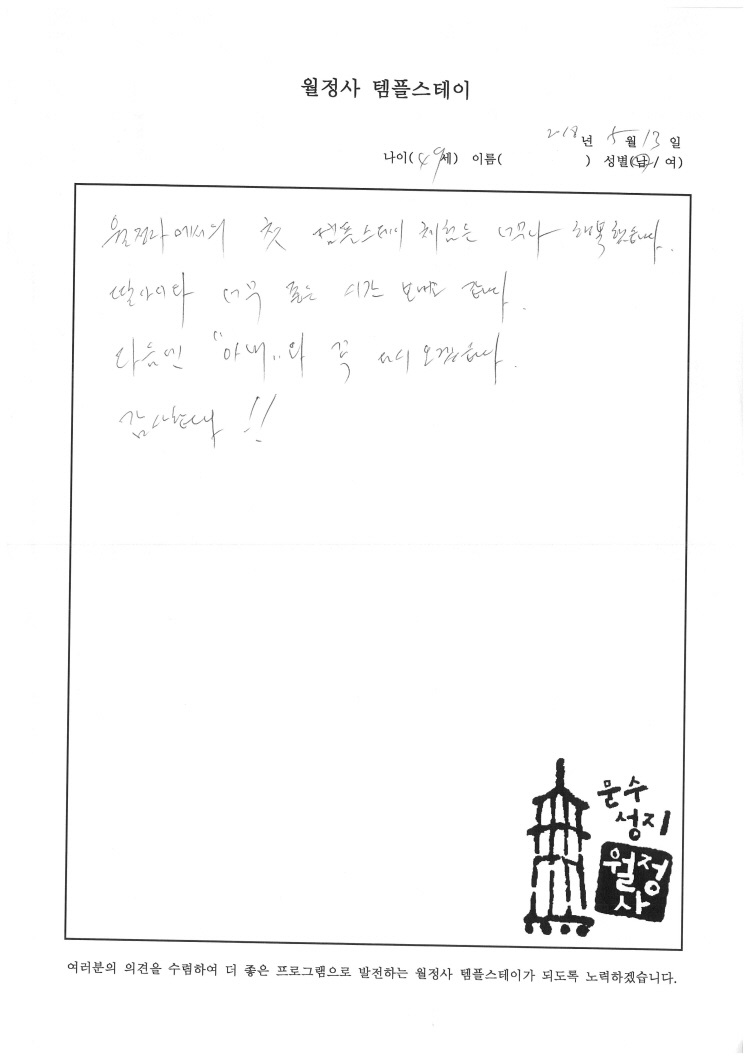 월정사 템플스테이
218년 5월 13일
나이(49세) 이름( ) 성별(남/여)
월정사에서의 첫 템플스테이 체험은 너무나 행복했습니다.
딸아이와 너무 좋은 시간 보내고 갑니다.
다음엔 "아내"와 꼭 다시 오겠습니다.
감사합니다!!
문수
성지
월정
사
여러분의 의견을 수렴하여 더 좋은 프로그램으로 발전하는 월정사 템플스테이가 되도록 노력하겠습니다.